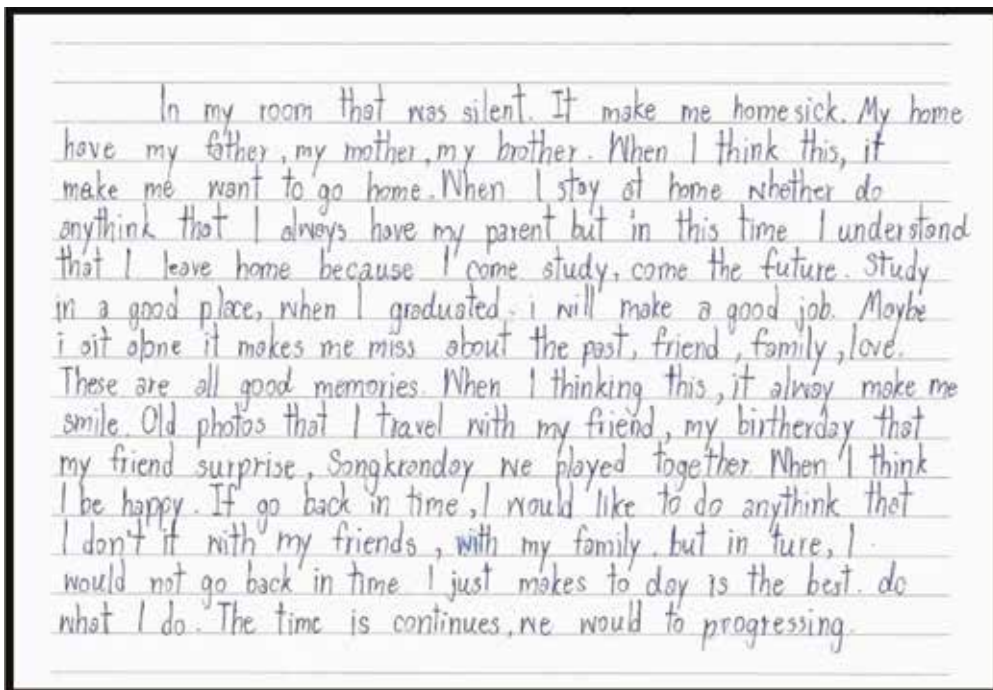 In my room that was silent. It make me homesick. My home
have my father, my mother, my brother. When I think this, it
make me want to go home. When I stay at home whether do
anythink that I always have my parent but in this time I understand
that I leave home because I come study, come the future. Study
in a good place, when I graduated. i will make a good job. Maybe
i sit alone it makes me miss about the past, friend, family, love.
These are all good memories. When I thinking this, it alway make me
smile. Old photos that I travel with my friend, my birtherday that
my friend surprise, Songkranday we played together. When I think
I be happy. If go back in time, I would like to do anythink that
I don't it with my friends, with my family. but in ture, I
would not go back in time I just makes to day is the best. do
what I do. The time is continues, we would to progressing.